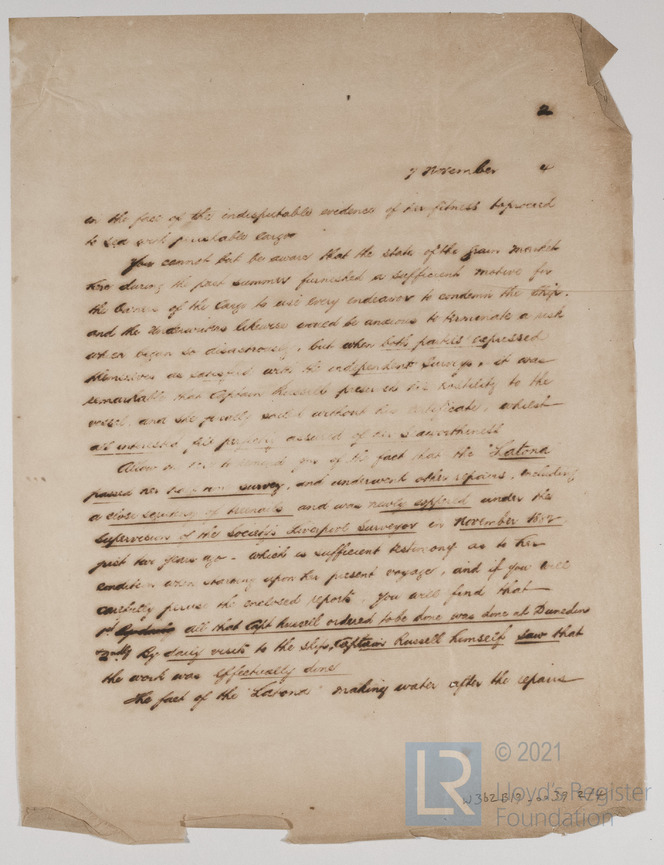 2
7 November 4
in the face of the indisputable evidence of her fitness to proceed
to sea with perishable cargo
You cannot but be aware that the state of the grain market
here during the past summer furnished a sufficient motive for
the owners of the cargo to use every endeavor to condemn the ship.
and the Underwriters likewise would be anxious to terminate a risk
which began so disastrously, but when both parties expressed
themselves as satisfied with the independent Surveys, it was
remarkable that Captain Russell preserved his hostility to the
vessel, and she finally sailed without his certificate, whilst
all interested felt assured of her seaworthiness
Allow us to remind you of the fact that the "Latona
passed her survey, and underwent other repairs, including
a close scrutiny of treenails and was newly coppered under the
supervision of the Society's Liverpool Surveyor in November 1882
just two years ago - which is sufficient testimony as to her
condition when starting upon her present voyage, and if you will
carefully peruse the enclosed reports, you will find that
1st all that Capt Russell ordered to be done was done at Dunedin
2ndly By daily visits to the ship, Captain Russell himself saw that
the work was effectually done
The fact of the "Latona" making water after the repairs
W362 B19 -0039 2/4
LR
© 2021
Lloyd's Register
Foundation